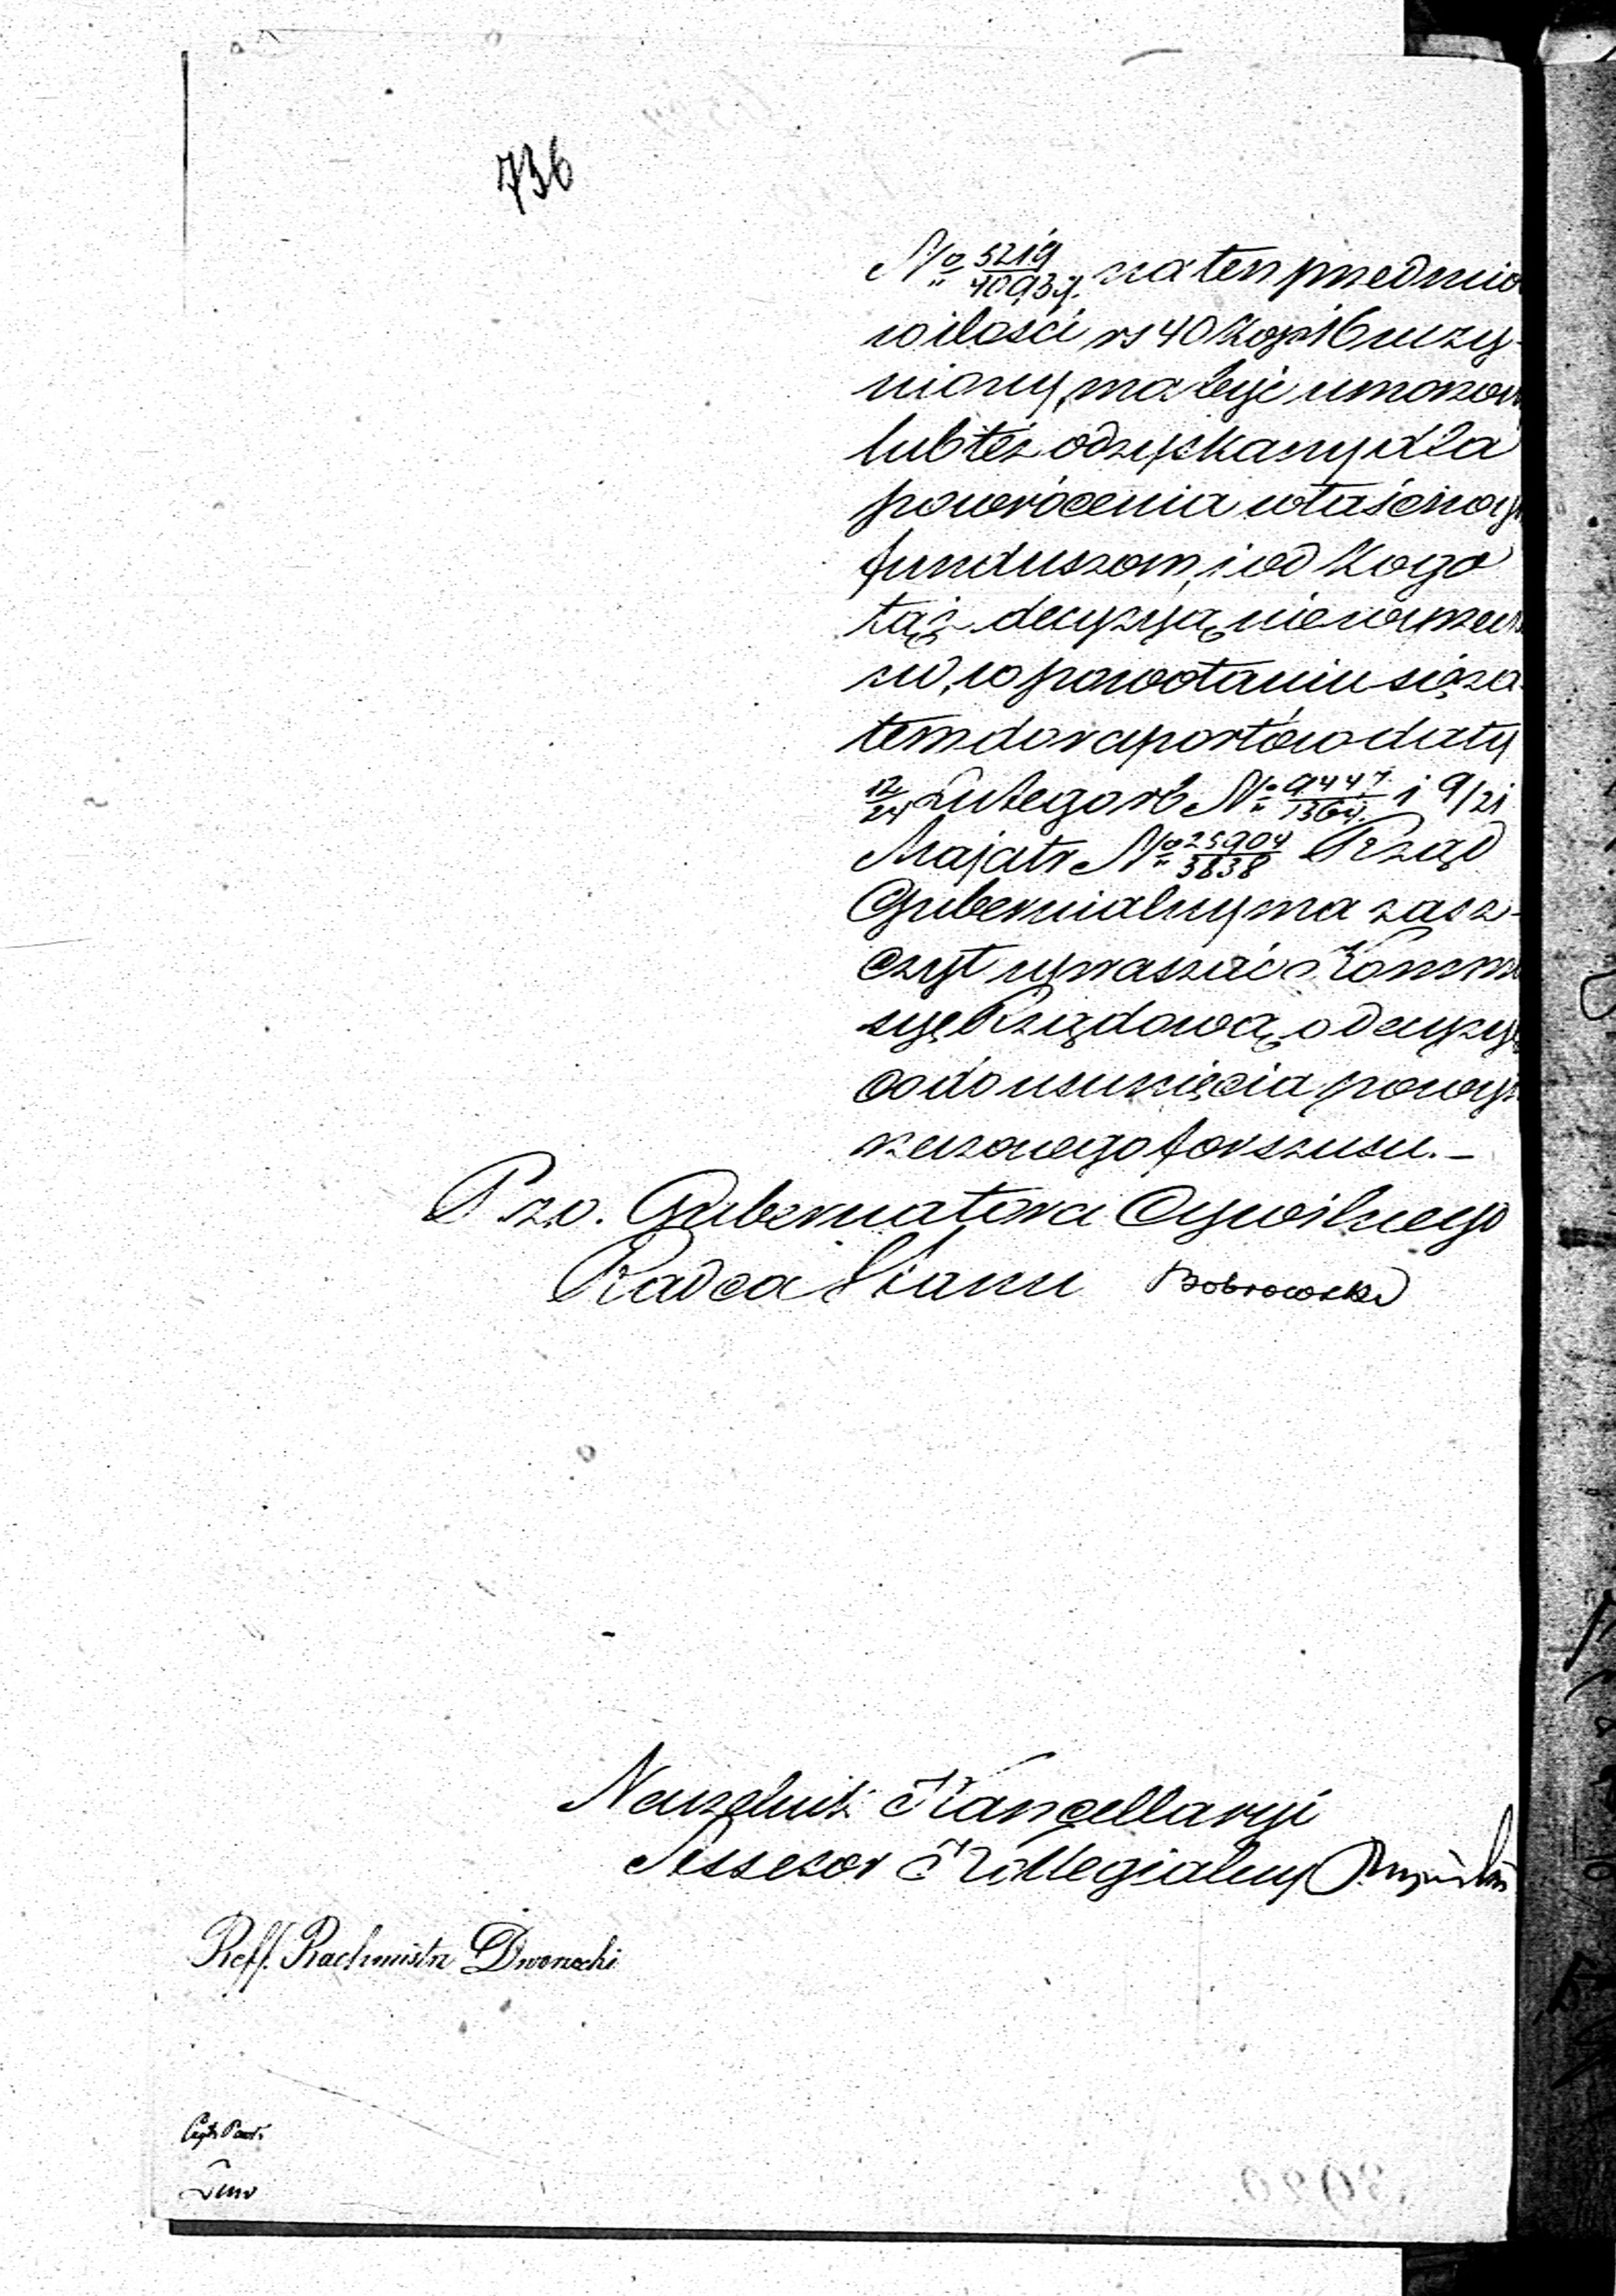 736
No 5219/40937. na ten przedmio
w ilości rs 40 kop 16 uczy-
niony, ma byc umorzon
lub też odzyskany dla
powrócenia właściwy
funduszom, i od kogo
taż decyzyą nie wyrzeczo
no, w powołaniu się za
tem do raportów daty
12/24 Lutego rb No 9447/1364. i 9/21
Maja tr No 25904/3838 Rząd
Gubernialny ma zasz-
czyt upraszać Kommi
syę Rządową o decyzyę
co do usunięcia powyż
rzeczonego forszusu. _
P. zo. Gubernatora Cywilnego
Radca Stanu Bobrowski
Naczelnik Kancellaryi
Assessor Kollegialny
Reff. Rachmistrz Dworzecki